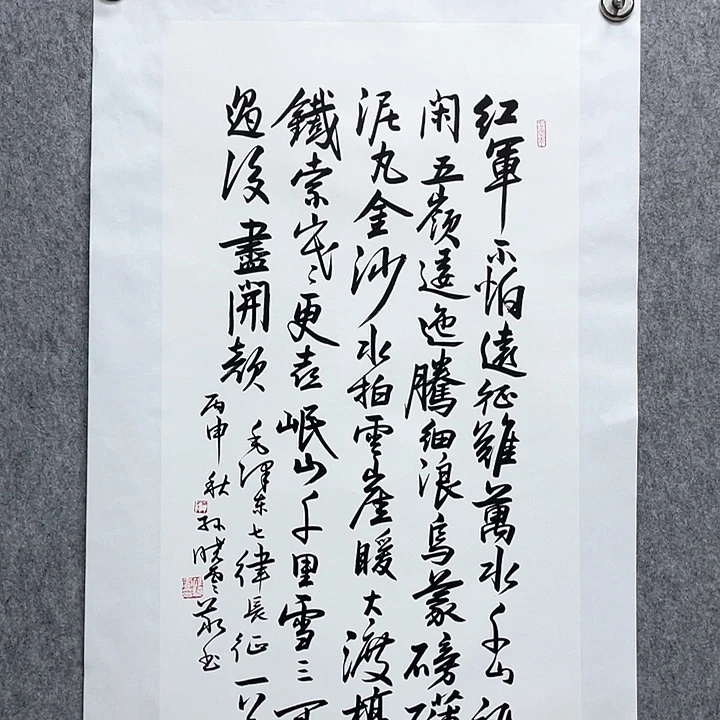 红軍不怕遠征難萬水千山
闲五嶺逶迤騰細浪烏蒙磅礴
泥丸金沙水拍雲崖暖大渡橋
鐵索寒〻更喜岷山千里雪三軍
過後盡開颜
毛澤东七律長征一首
丙申秋孙晓雲敬书